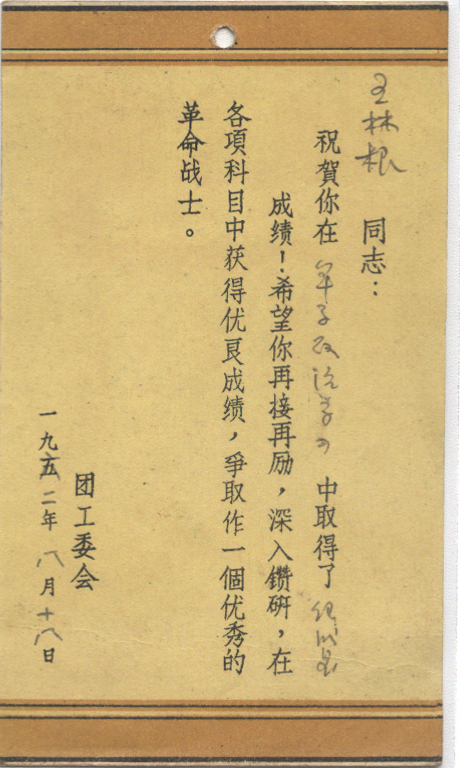 王林根 同志：
祝賀你在 政治学习 中取得了
成绩！希望你再接再励，深入鑽研，在
各項科目中获得优良成绩，爭取作一個优秀的
革命战士。
团工委会
一九五二年八月十八日